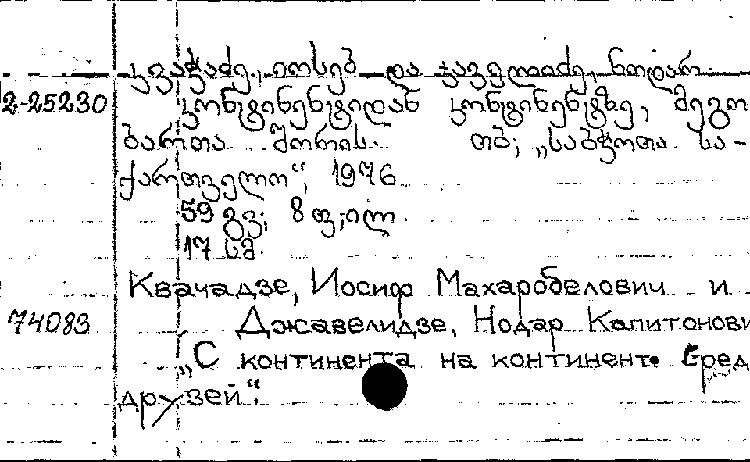 კვაჭაძე, იოსებ და ჯაველიძე, ნოდარ.
2-25230 კონტინენტიდან კონტინენტზე, მეგო-
ბართა შორის. თბ; „საბჭოთა სა-
ქართველო“, 1976
59 გვ; 8 ფ; ილ.
17 სმ.
Квачадзе, Иосиф Махаробелович и
74083 Джавелидзе, Нодар Капитонови
„С континента на континент. Сред
друзей“.